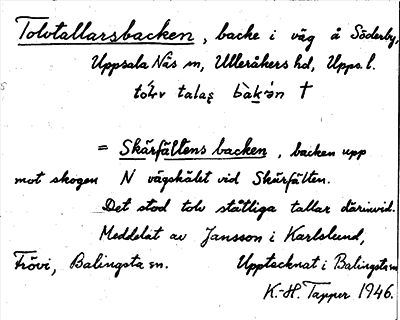 Tolvtallarsbacken, backe i väg å Söderby,
Uppsala Näs sn, Ulleråkers hd, Upps. l.
tól·v talaṣ bàkən †
= Skärfältens backen, backen upp
mot skogen N vägskälet vid Skärfälten.
Det stod tolv ståtliga tallar därinvid.
Meddelat av Jansson i Karlslund,
Frövi, Balingsta sn. Upptecknat i Balingsta sn
K.-H. Tapper 1946.